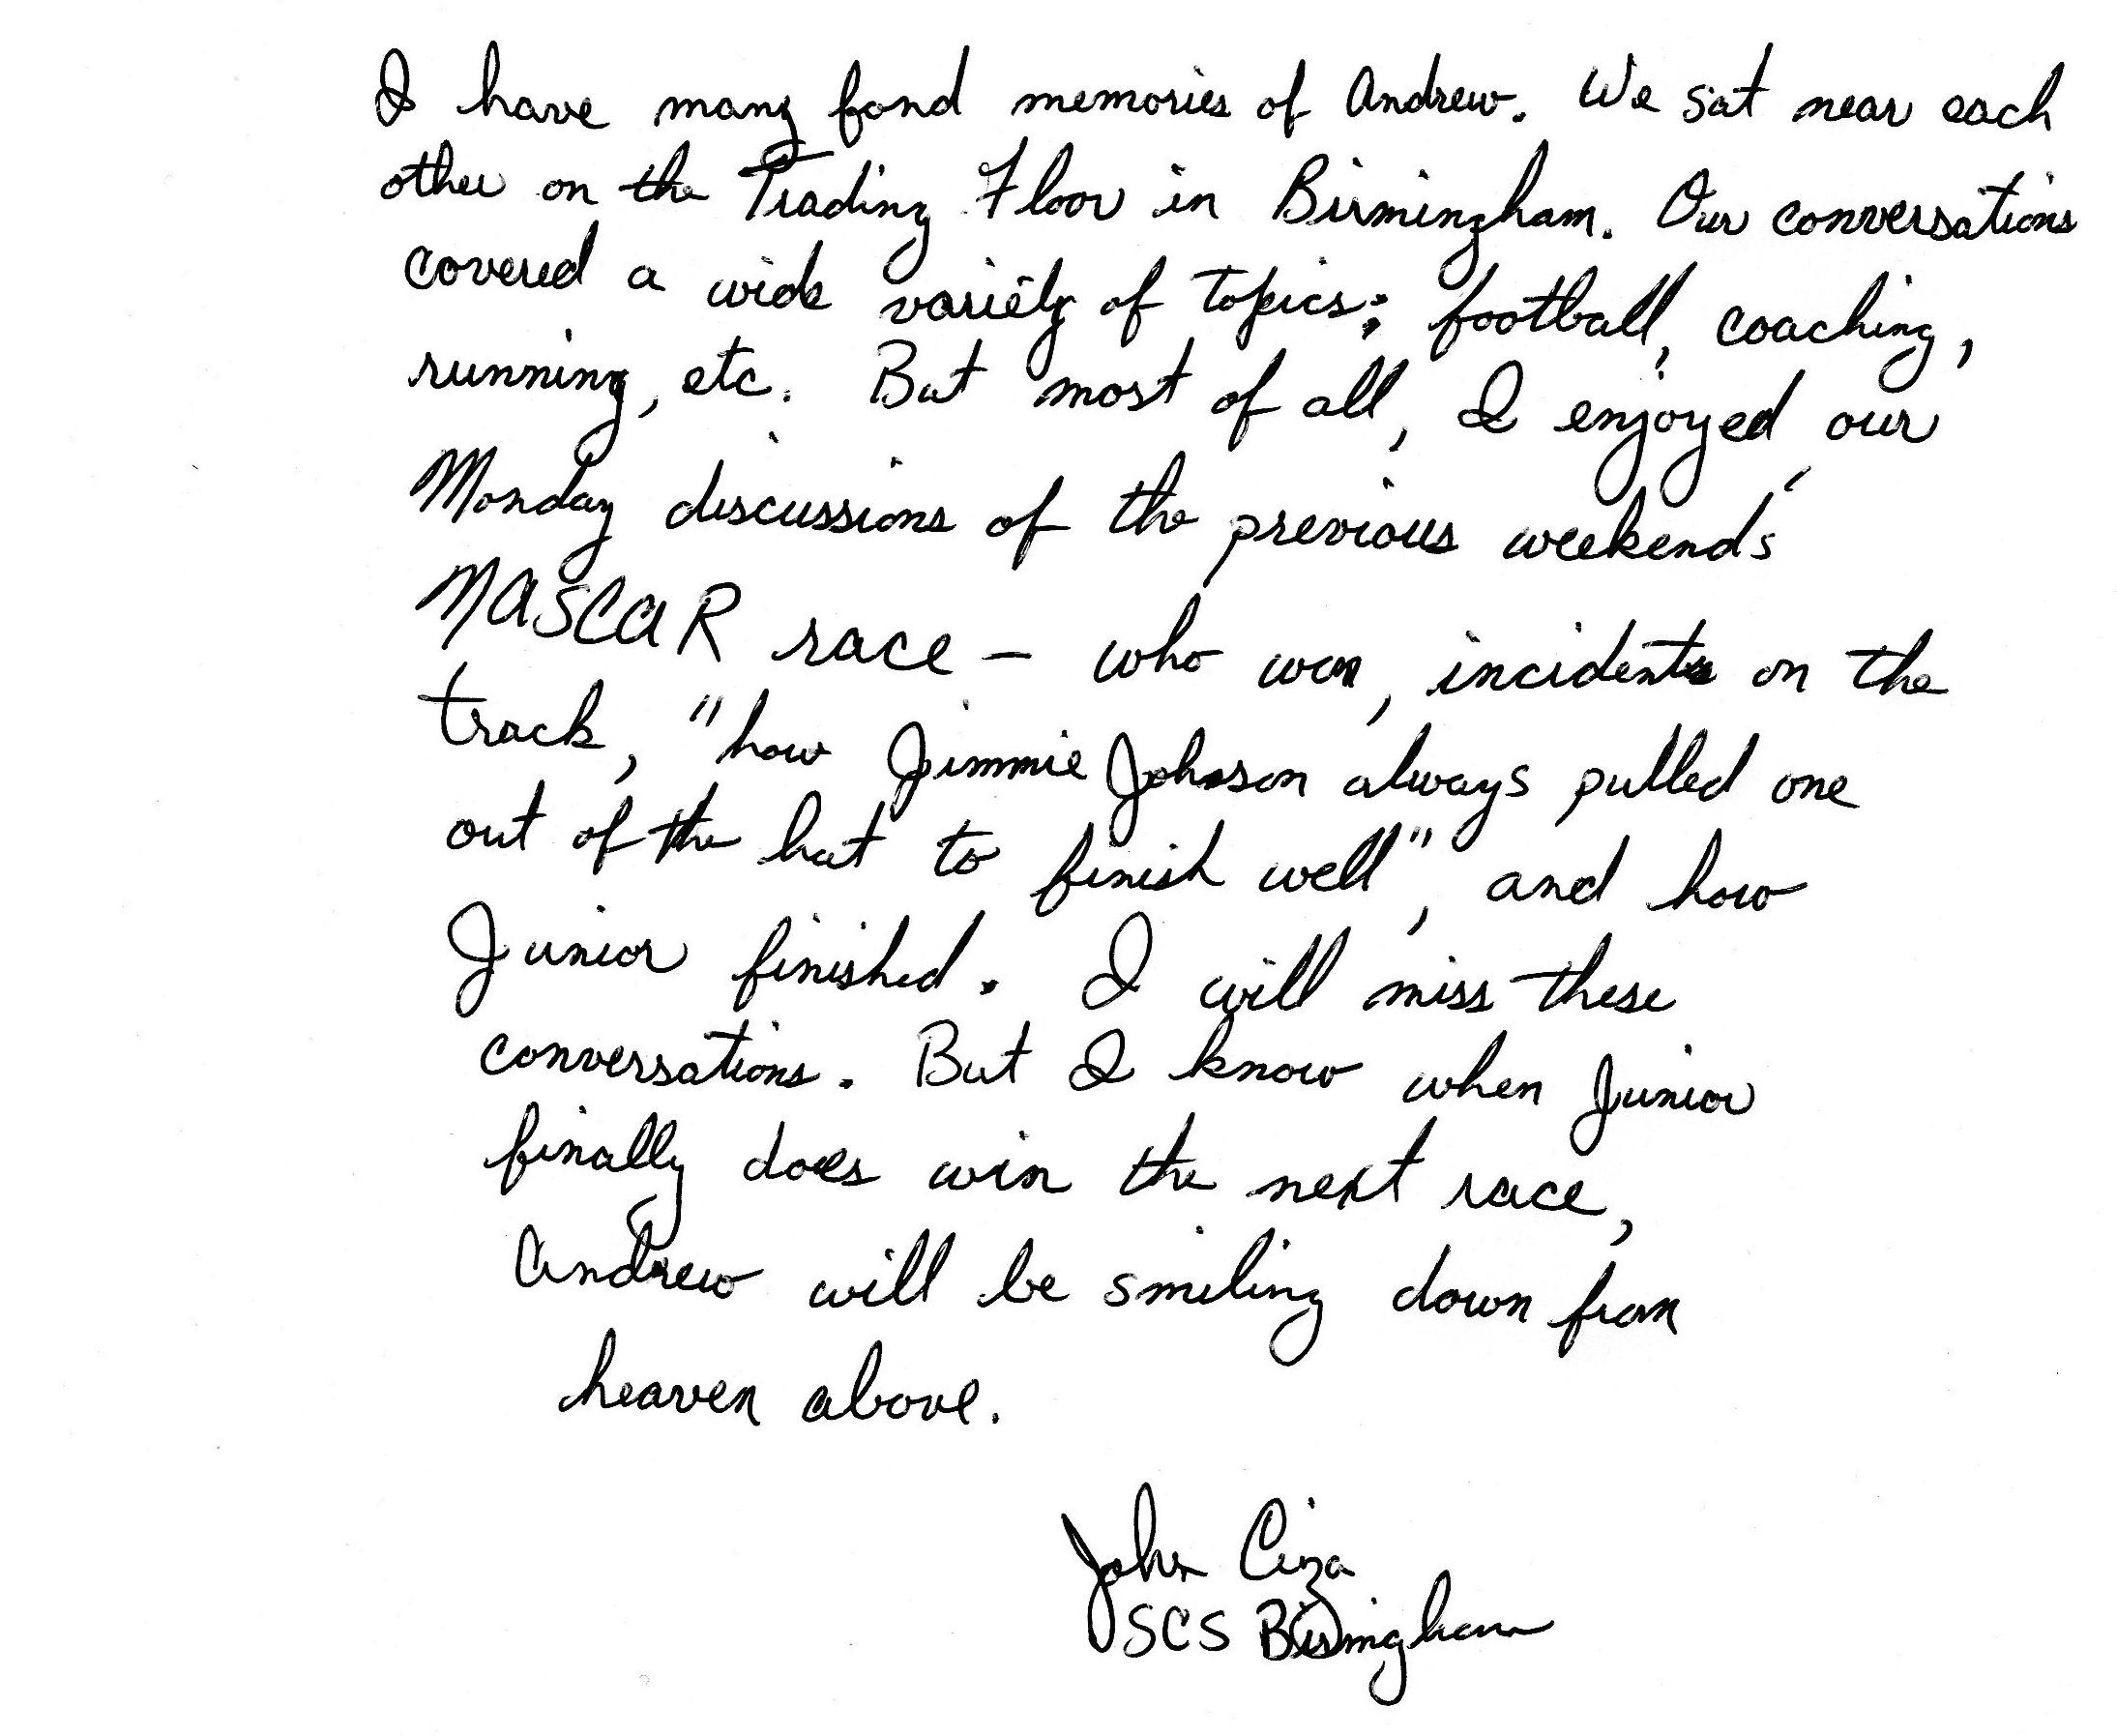 I have many fond memories of Andrew. We sat near each
other on the Trading Floor in Birmingham. Our conversations
covered a wide variety of topics; football, coaching,
running, etc. But most of all, I enjoyed our
Monday discussions of the previous weekend's
NASCAR race – who won, incidents on the
track, "how Jimmie Johnson always pulled one
out of the hat to finish well", and how
Junior finished. I will miss these
conversations. But I know when Junior
finally does win the next race,
Andrew will be smiling down from
heaven above.
John Ciza
SCS Birmingham